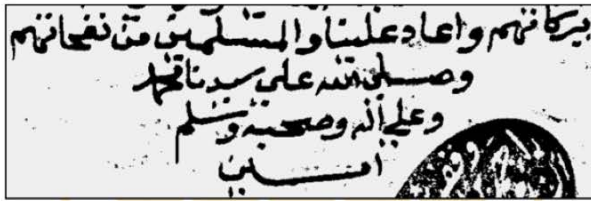 ببركاتهم واعاد علينا والمسلمين من نفحاتهم
وصلى الله على سيدنا محمد
وعلى آله وصحبه وسلم
امين